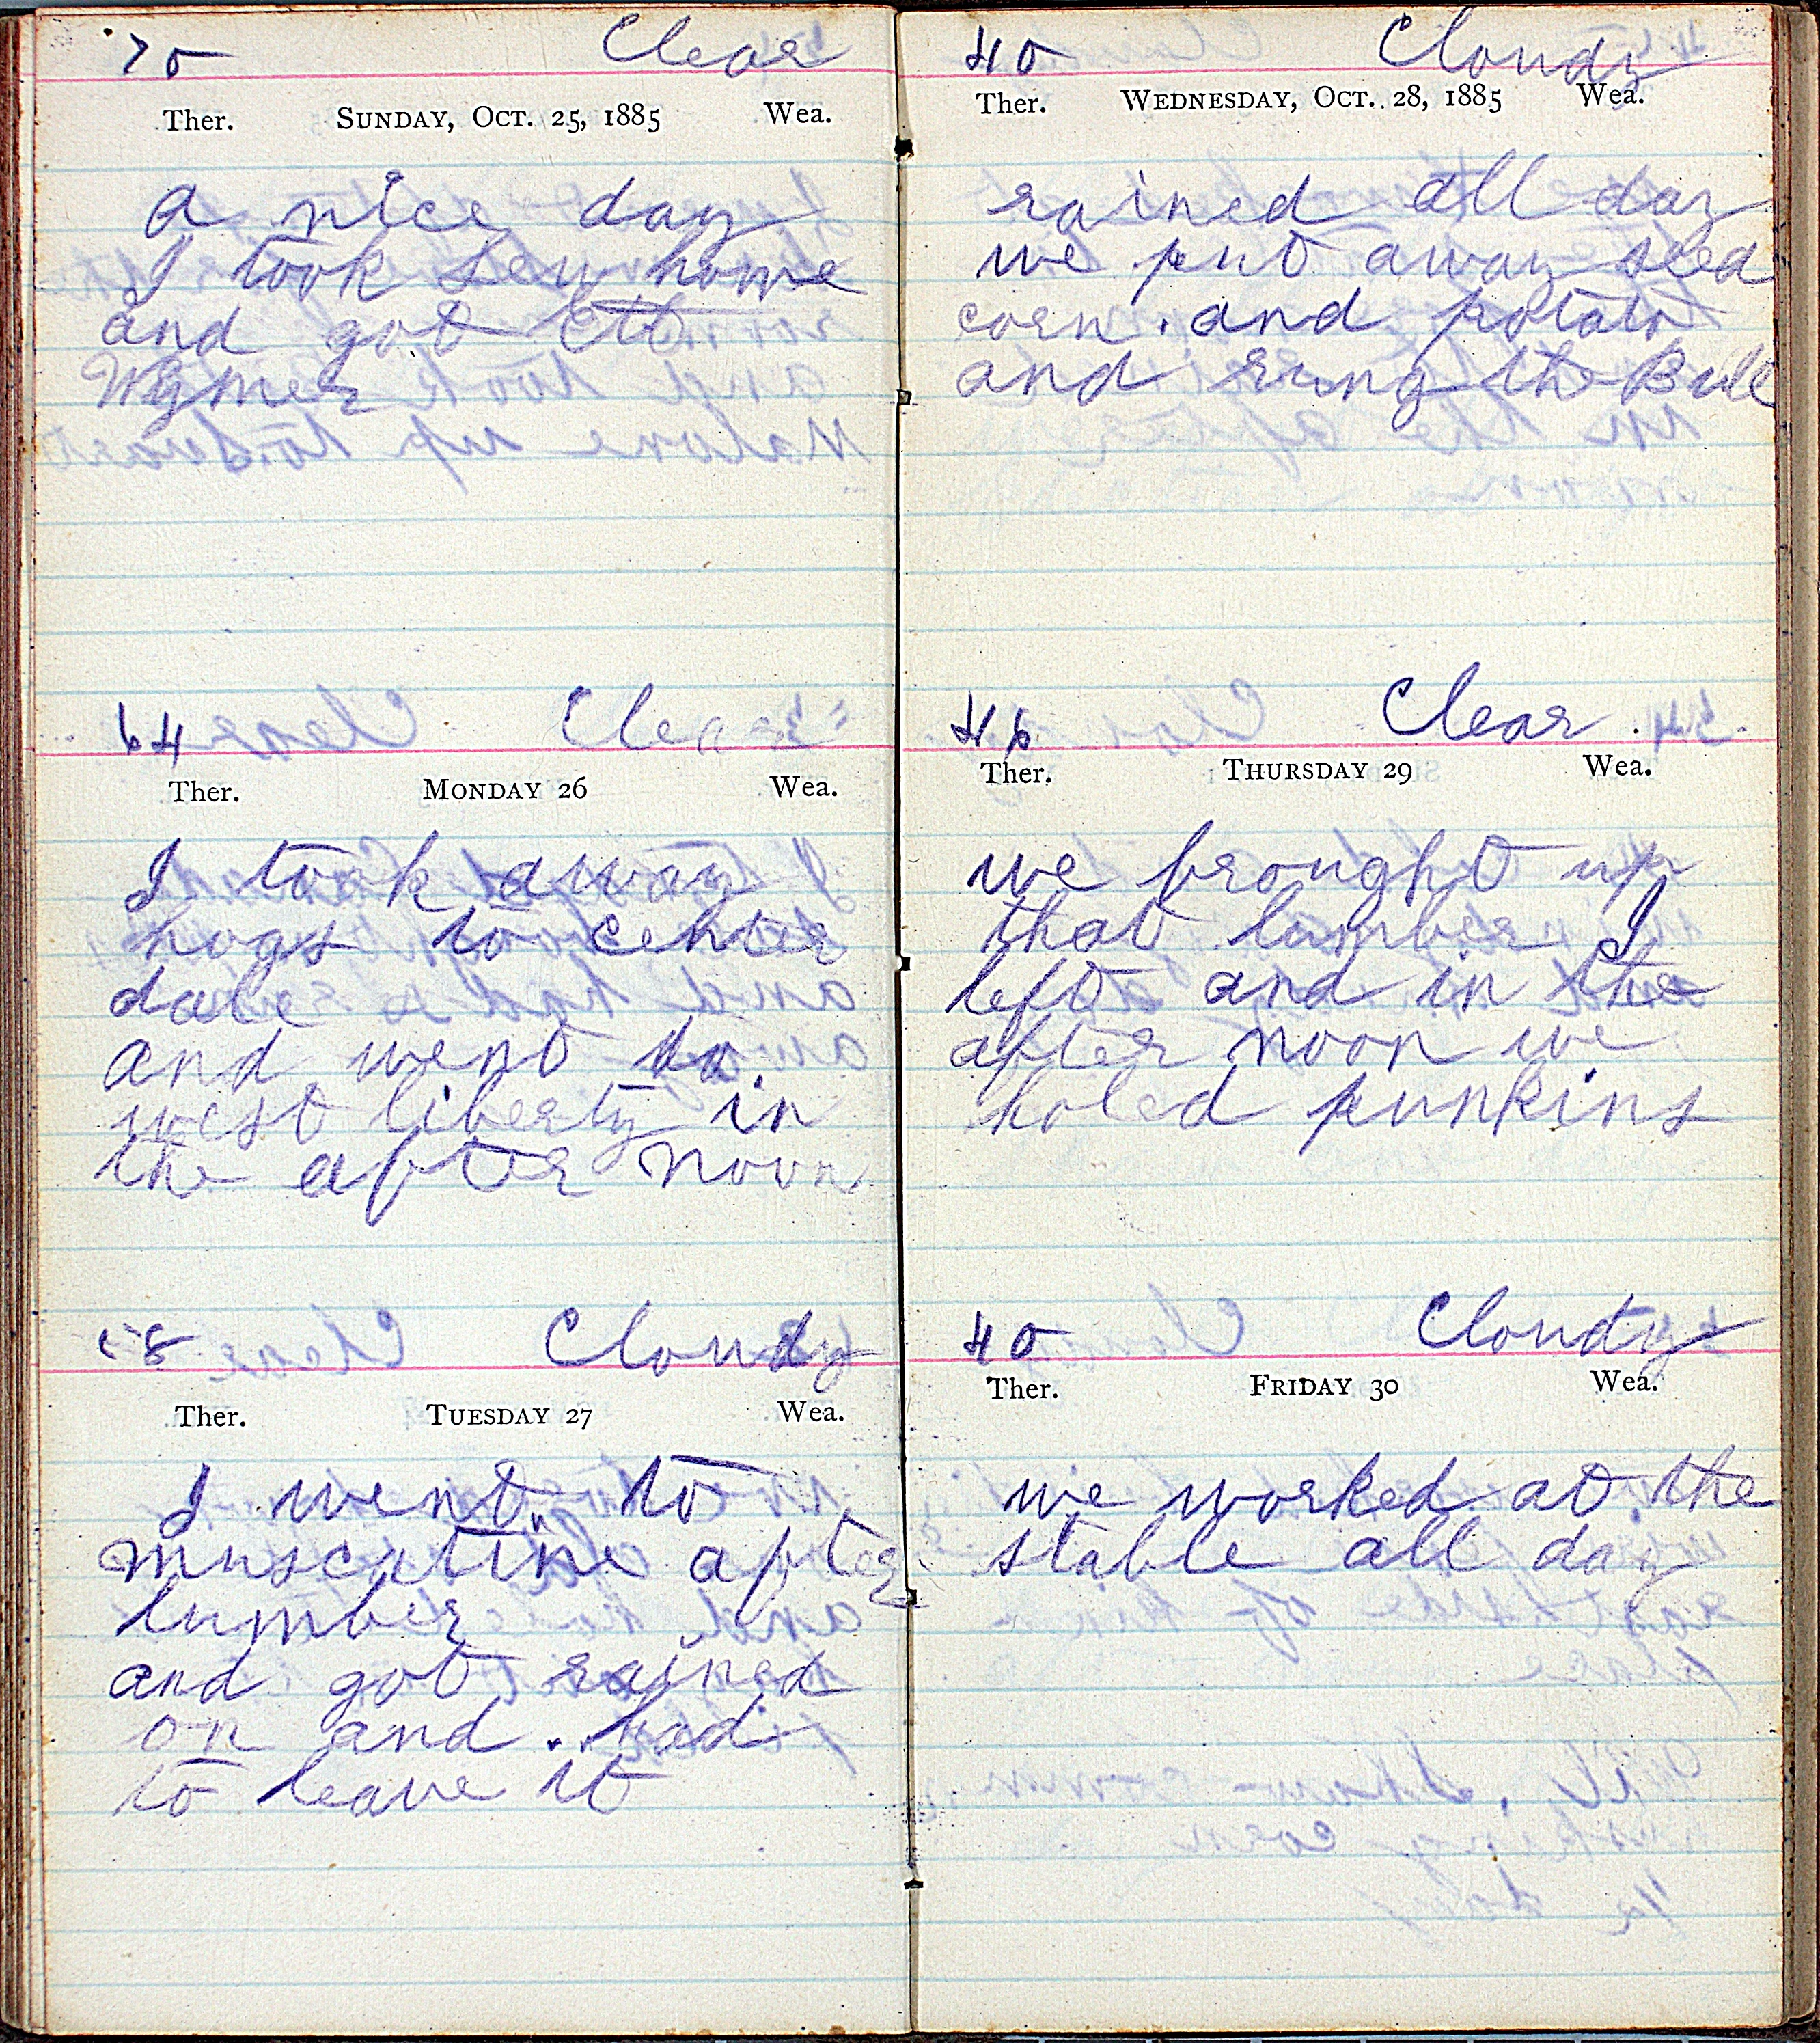 70 Clear
Ther. SUNDAY, OCT. 25, 1885 Wea.
a nice day
I took Lew home
and got Ett
Wymer
64 Clear
Ther. MONDAY 26 Wea.
I took away
hogs to center
dale
and went to
west liberty in
the after noon
58 Cloudy
Ther. TUESDAY 27 Wea.
I went to
muscatine after
lumber
and got rained
on and had
to leave it
40 Cloudy
Ther. WEDNESDAY, OCT. 28, 1885 Wea.
rained all day
we put away seed
corn and potato
and rung the Bull
46 Clear
Ther. THURSDAY 29 Wea.
we brought up
that lumber I
left and in the
after noon we
holed punkins
40 Cloudy
Ther. FRIDAY 30 Wea.
we worked at the
stable all day